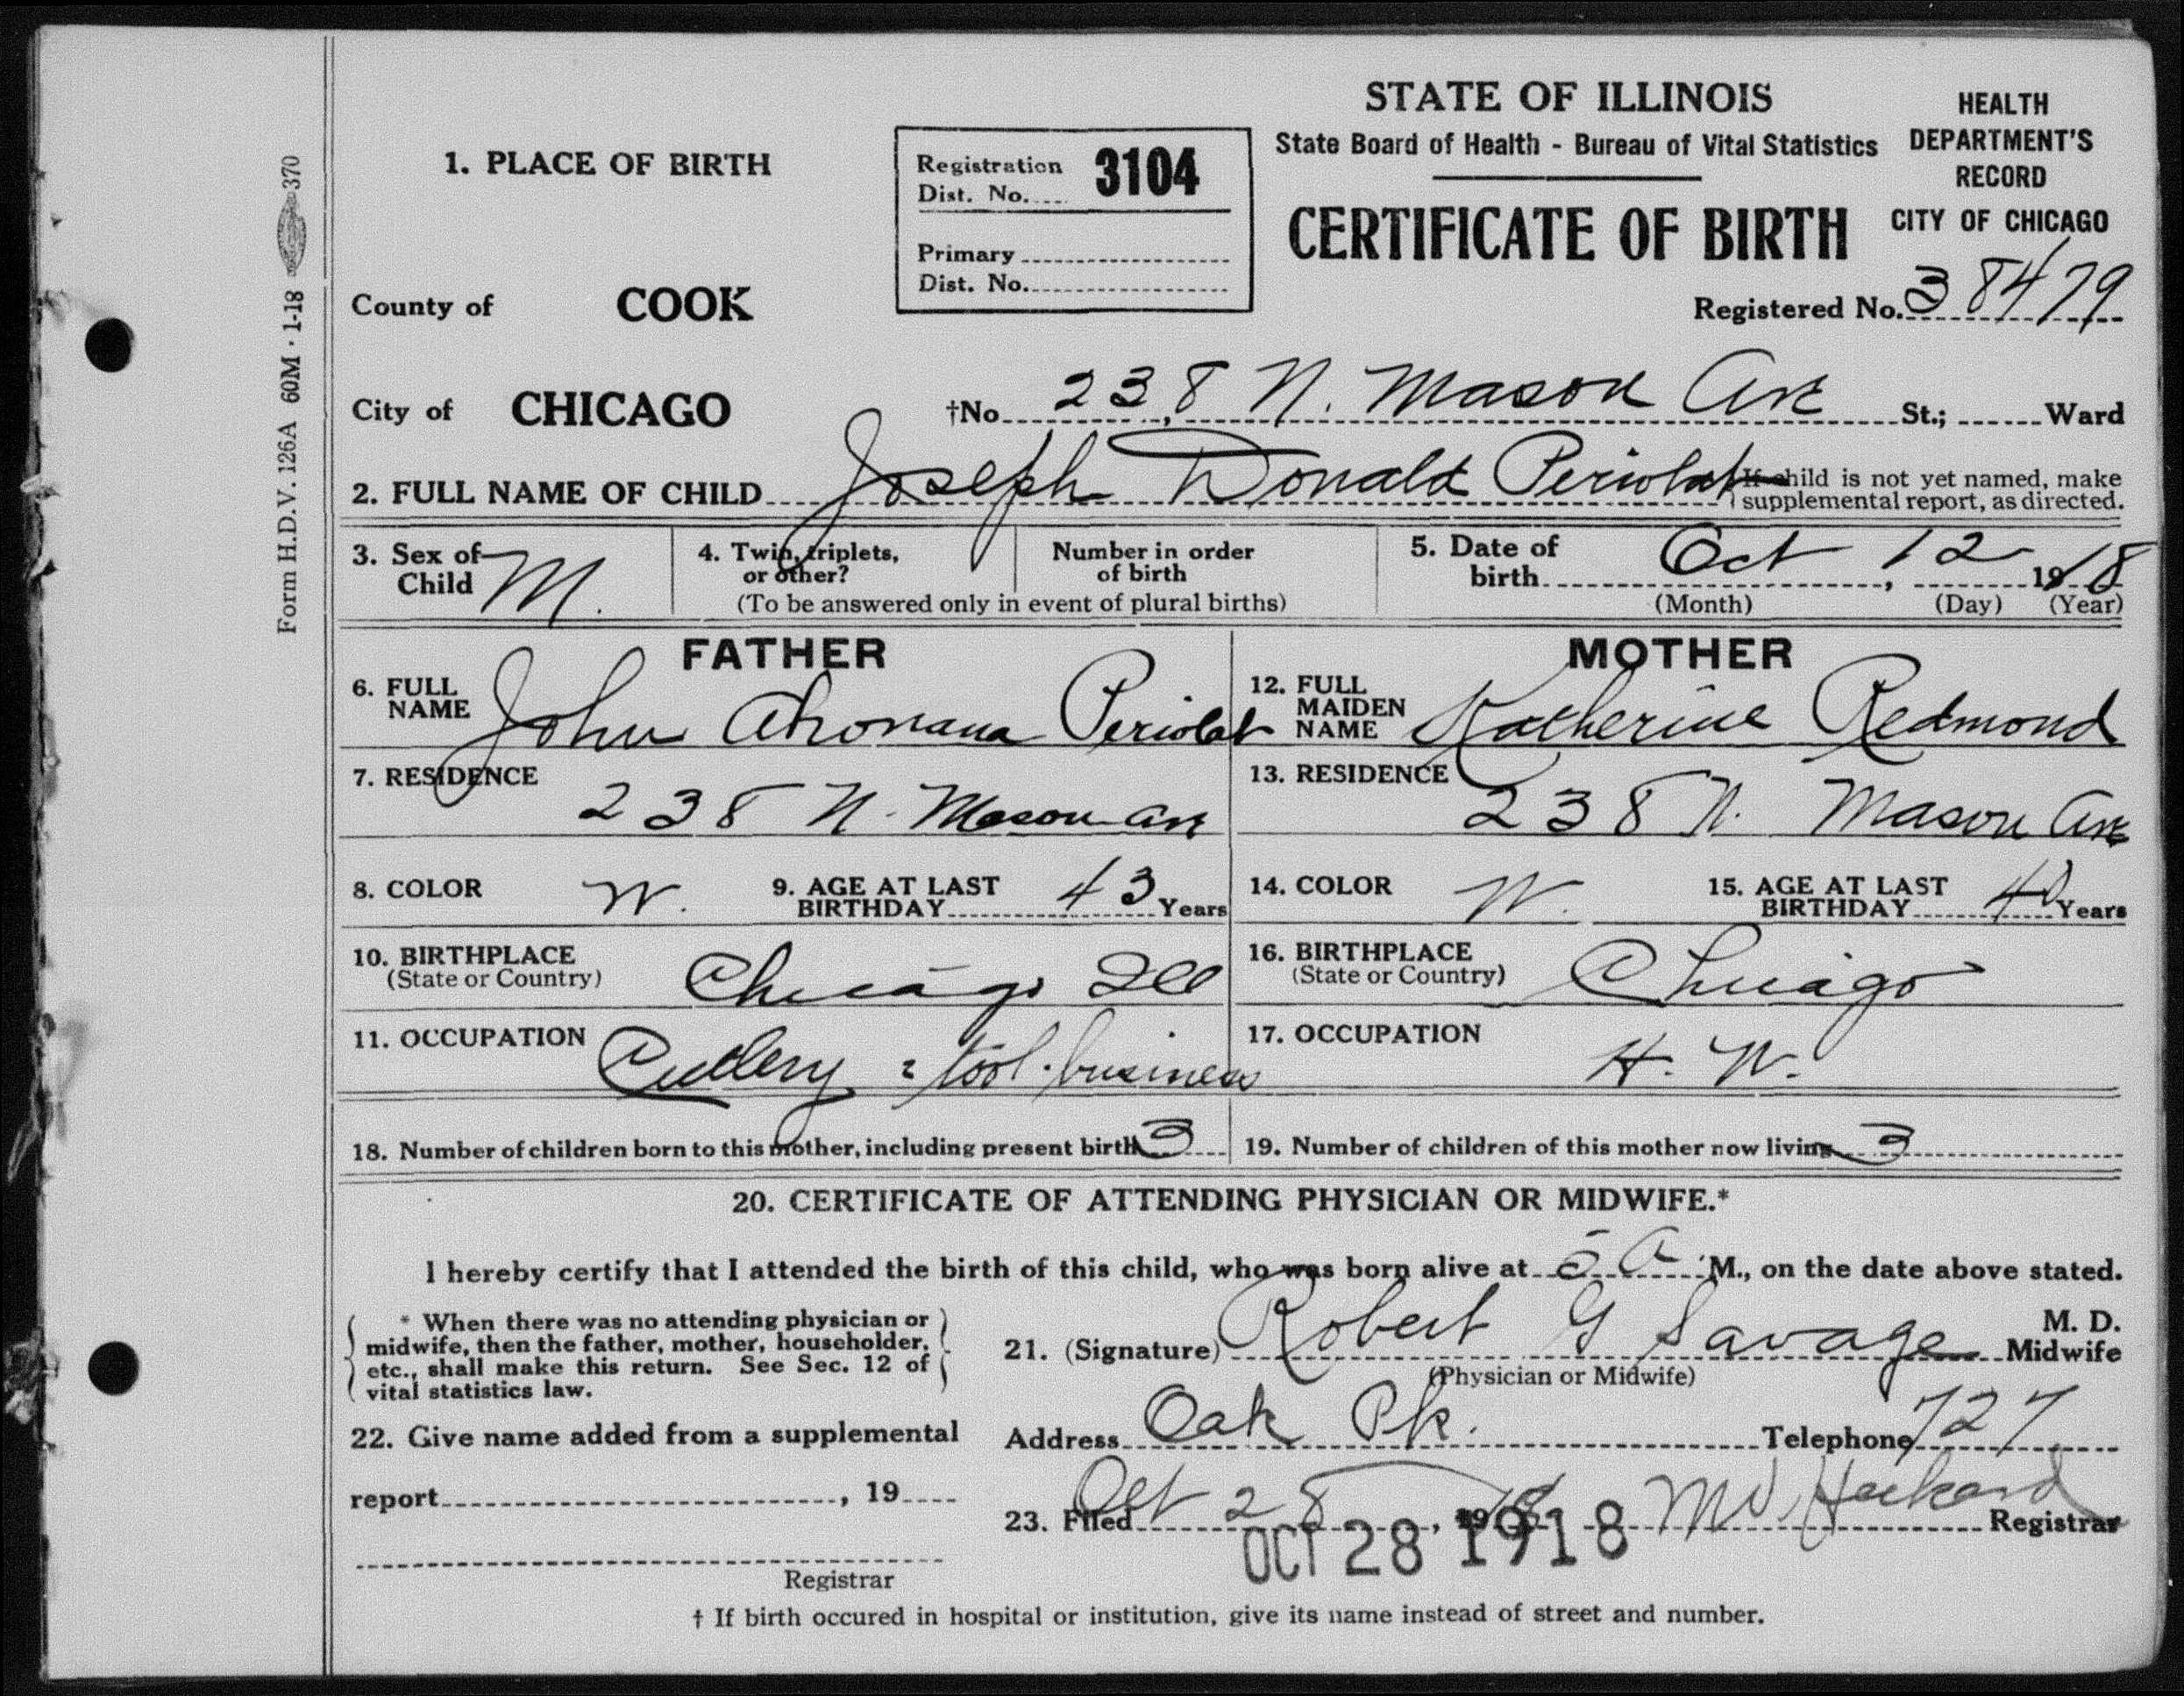 STATE OF ILLINOIS
State Board of Health - Bureau of Vital Statistics
CERTIFICATE OF BIRTH
HEALTH
DEPARTMENT'S
RECORD
CITY OF CHICAGO
Registered No. 38479
1. PLACE OF BIRTH
Registration
Dist. No. 3104
Primary
Dist. No.
County of COOK
City of CHICAGO †No 238 N. Mason Ave St.; Ward
2. FULL NAME OF CHILD Joseph Donald Periolat
If child is not yet named, make
supplemental report, as directed.
3. Sex of
Child M.
4. Twin, triplets,
or other?
Number in order
of birth
(To be answered only in event of plural births)
5. Date of
birth Oct 12, 1918
(Month) (Day) (Year)
FATHER
6. FULL
NAME John Periolat
7. RESIDENCE 238 N. Mason Ave
8. COLOR W. 9. AGE AT LAST
BIRTHDAY 43 Years
10. BIRTHPLACE
(State or Country) Chicago Ill
11. OCCUPATION Cutlery & tool business
MOTHER
12. FULL
MAIDEN
NAME Katherine Redmond
13. RESIDENCE 238 N. Mason Ave
14. COLOR W. 15. AGE AT LAST
BIRTHDAY 40 Years
16. BIRTHPLACE
(State or Country) Chicago
17. OCCUPATION H. W.
18. Number of children born to this mother, including present birth 3
19. Number of children of this mother now living 3
20. CERTIFICATE OF ATTENDING PHYSICIAN OR MIDWIFE.*
I hereby certify that I attended the birth of this child, who was born alive at 5 A M., on the date above stated.
* When there was no attending physician or
midwife, then the father, mother, householder,
etc., shall make this return. See Sec. 12 of
vital statistics law.
21. (Signature) Robert G Savage M. D.
Midwife
(Physician or Midwife)
22. Give name added from a supplemental
report , 19
Registrar
Address Oak Pk. Telephone 727
23. Filed Oct 28, 1918 Registrar
OCT 28 1918
† If birth occured in hospital or institution, give its name instead of street and number.
Form H.D.V. 126A 60M · 1-18 370